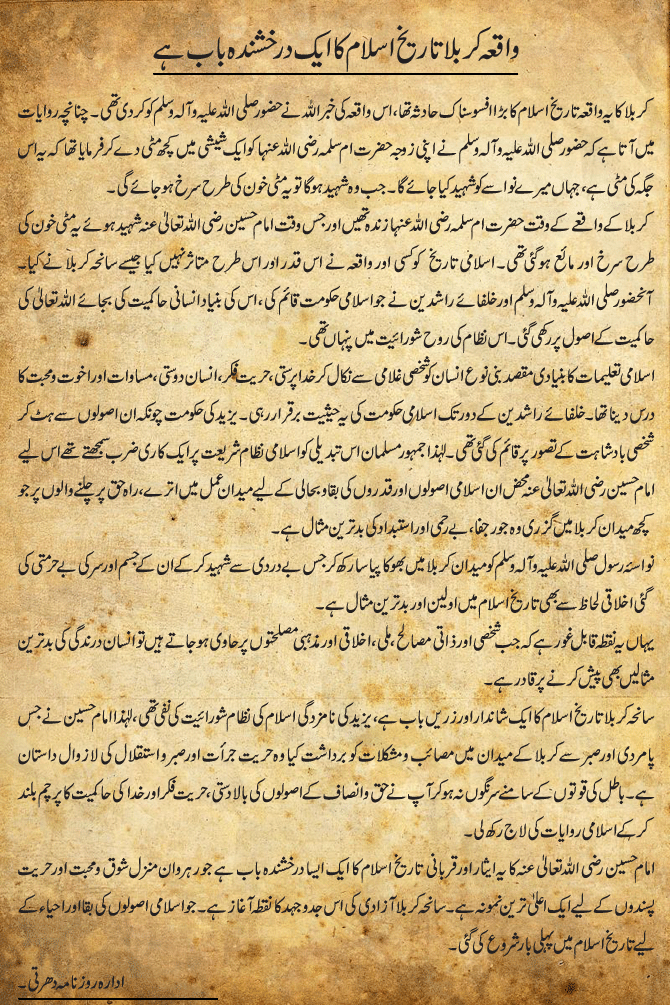 واقعہ کربلا تاریخ اسلام کا ایک درخشندہ باب ہے
کربلا کا یہ واقعہ تاریخ اسلام کا بڑا افسوسناک حادثہ تھا، اس واقعہ کی خبر اللہ نے حضور صلی اللہ علیہ وآلہ وسلم کو کر دی تھی۔ چنانچہ روایات
میں آتا ہے کہ حضور صلی اللہ علیہ وآلہ وسلم نے اپنی زوجہ حضرت ام سلمہ رضی اللہ عنہا کو ایک شیشی میں کچھ مٹی دے کر فرمایا تھا کہ یہ اس
جگہ کی مٹی ہے، جہاں میرے نواسے کو شہید کیا جائے گا۔ جب وہ شہید ہوگا تو یہ مٹی خون کی طرح سرخ ہو جائے گی۔
کربلا کے واقعے کے وقت حضرت ام سلمہ رضی اللہ عنہا زندہ تھیں اور جس وقت امام حسین رضی اللہ تعالیٰ عنہ شہید ہوئے یہ مٹی خون کی
طرح سرخ اور مائع ہو گئی تھی۔ اسلامی تاریخ کو کسی اور واقعہ نے اس قدر اور اس طرح متاثر نہیں کیا جیسے سانحہ کربلا نے کیا۔
آنحضور صلی اللہ علیہ وآلہ وسلم اور خلفائے راشدین نے جو اسلامی حکومت قائم کی، اس کی بنیاد انسانی حاکمیت کی بجائے اللہ تعالیٰ کی
حاکمیت کے اصول پر رکھی گئی۔ اس نظام کی روح شورائیت میں پنہاں تھی۔
اسلامی تعلیمات کا بنیادی مقصد بنی نوع انسان کو شخصی غلامی سے نکال کر خدا پرستی، حریت فکر، انسان دوستی، مساوات اور اخوت ومحبت کا
درس دینا تھا۔ خلفائے راشدین کے دور تک اسلامی حکومت کی یہ حیثیت برقرار رہی۔ یزید کی حکومت چونکہ ان اصولوں سے ہٹ کر
شخصی بادشاہت کے تصور پر قائم کی گئی تھی۔ لہذا جمہور مسلمان اس تبدیلی کو اسلامی نظام شریعت پر ایک کاری ضرب سمجھتے تھے اس لیے
امام حسین رضی اللہ تعالیٰ عنہ محض ان اسلامی اصولوں اور قدروں کی بقا و بحالی کے لیے میدان عمل میں اترے، راہ حق پر چلنے والوں پر جو
کچھ میدان کربلا میں گزری وہ جور جفا، بے رحمی اور استبداد کی بدترین مثال ہے۔
نواسئہ رسول صلی اللہ علیہ وآلہ وسلم کو میدان کربلا میں بھوکا پیاسا رکھ کر جس بے دردی سے شہید کرکے ان کے جسم اور سر کی بے حرمتی کی
گئی اخلاقی لحاظ سے بھی تاریخ اسلام میں اولین اور بدترین مثال ہے۔
یہاں یہ نقطہ قابل غور ہے کہ جب شخصی اور ذاتی مصالح، ملی، اخلاقی اور مذہبی مصلحتوں پر حاوی ہو جاتے ہیں تو انسان درندگی کی بدترین
مثالیں بھی پیش کرنے پر قادر ہے۔
سانحہ کربلا تاریخ اسلام کا ایک شاندار اور زریں باب ہے، یزید کی نامزدگی اسلام کی نظام شورائیت کی نفی تھی، لہٰذا امام حسین نے جس
پامردی اور صبر سے کربلا کے میدان میں مصائب و مشکلات کو برداشت کیا وہ حریت جرأت اور صبر و استقلال کی لازوال داستان
ہے۔ باطل کی قوتوں کے سامنے سرنگوں نہ ہو کر آپ نے حق و انصاف کے اصولوں کی بالادستی، حریت فکر اور خدا کی حاکمیت کا پرچم بلند
کرکے اسلامی روایات کی لاج رکھ لی۔
امام حسین رضی اللہ تعالیٰ عنہ کا یہ ایثار اور قربانی تاریخ اسلام کا ایک ایسا درخشندہ باب ہے جو رہروان منزل شوق ومحبت اور حریت
پسندوں کے لیے ایک اعلیٰ ترین نمونہ ہے۔ سانحہ کربلا آزادی کی اس جدوجہد کا نقطہ آغاز ہے۔ جو اسلامی اصولوں کی بقا اور احیاء کے
لیے تاریخ اسلام میں پہلی بار شروع کی گئی۔
ادارہ روزنامہ دھرتی۔